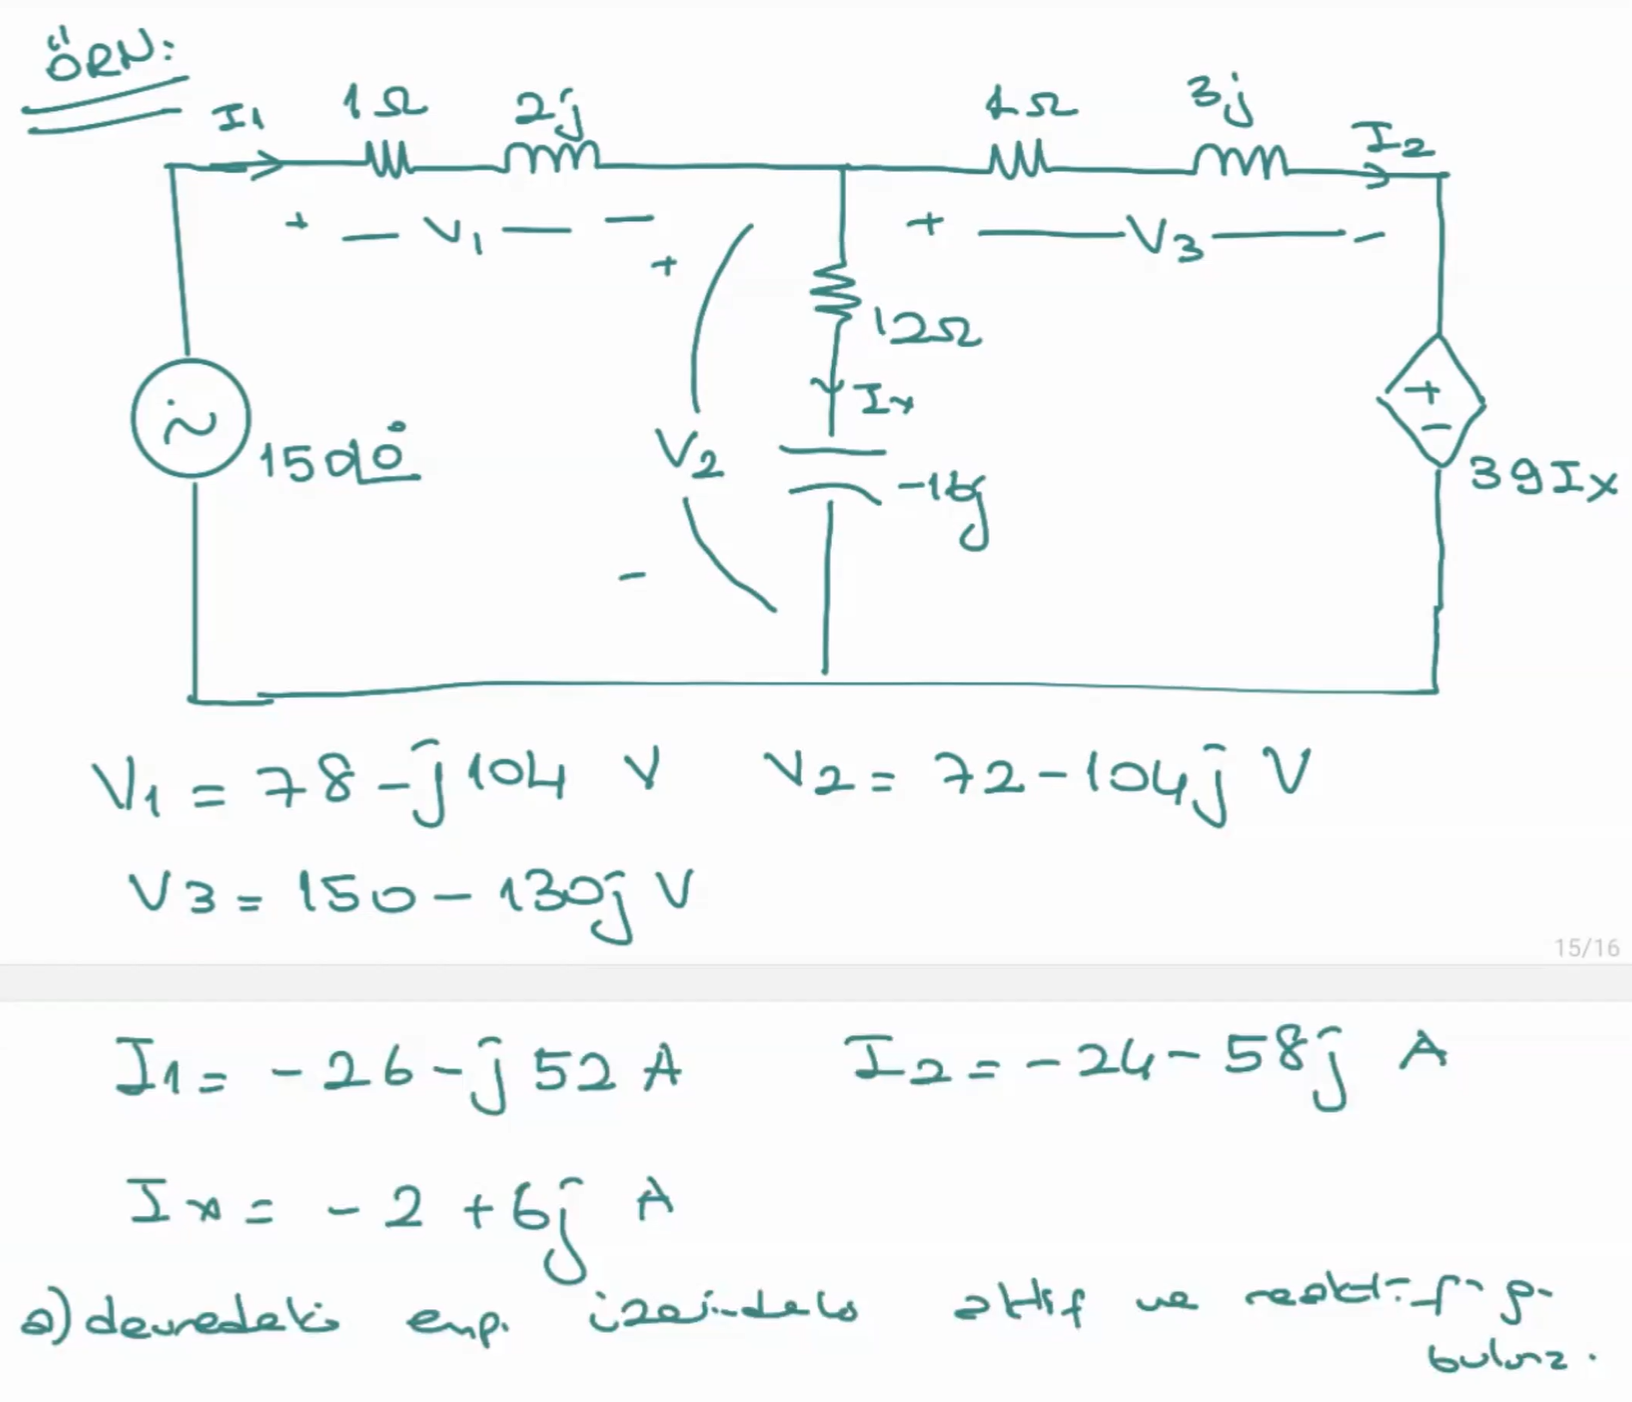 ÖRN:
I1 1Ω 2j 1Ω 3j I2
+ — V1 — − + — V3 — −
+
12Ω
Ix
+
−
150∠0° V2 -16j 39Ix
−
V1 = 78 - j104 V V2 = 72 - 104j V
V3 = 150 - 130j V
15/16
I1 = - 26 - j 52 A I2 = - 24 - 58j A
Ix = - 2 + 6j A
a) devredeki emp. üzerindeki aktif ve reaktif g.
bulunuz.